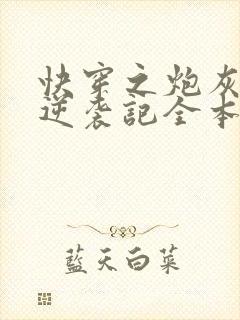 快穿之炮灰
逆袭記全本
藍天白菜